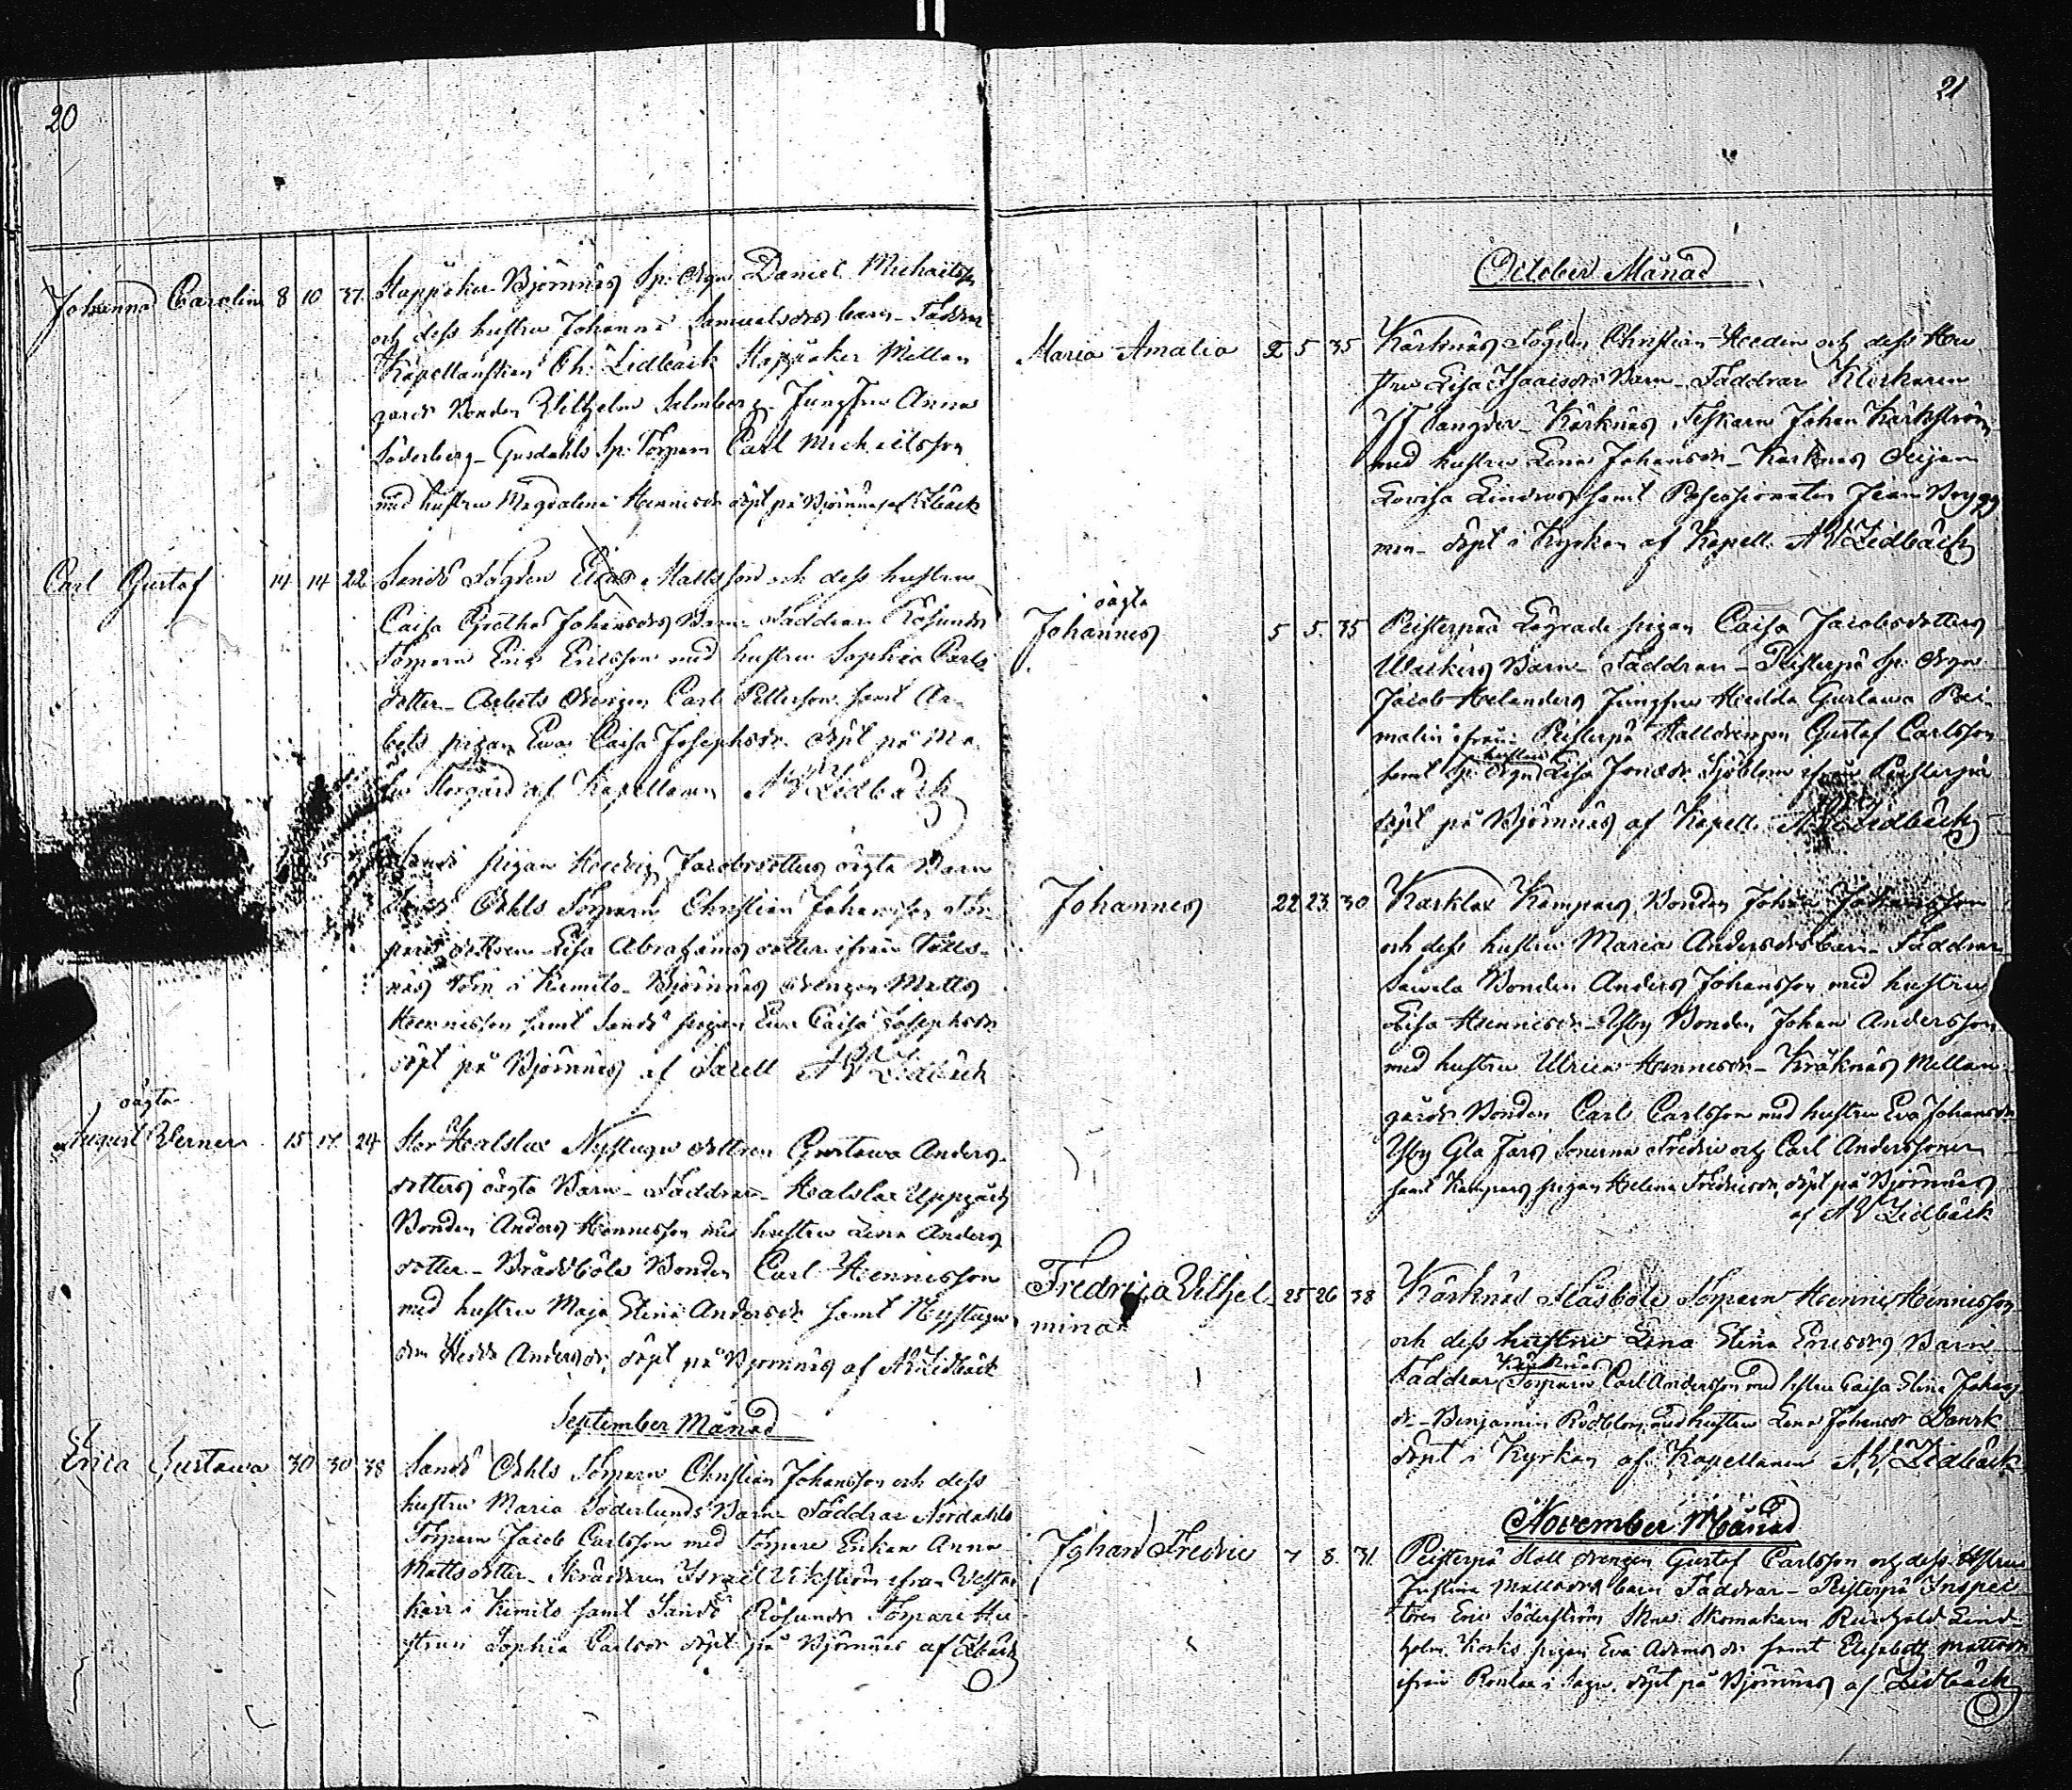 20
Johanna Carolin 8 10 37 Stappåker Björnnäs Sp. Drgn Daniel Michailsson
och dess hustru Johanna Samuelsdrs barn - Faddrar
Kapellanskan Ch. Lidbäck Stappåker Mellan
gårds Bonden Wilhelm Malmberg - Jungfru Anna
Söderberg - Gusdahls Sp. Torparn Carl Michailsson
med hustru Magdalena Hennicsdr döpt på Björnnäs af Lidbäck
Carl Gustaf 14 14 22 Sandö Mattsson och dess hustru
Caisa Gretha Johansdrs Barn - Faddrar Rösunds
Torparn Eric Ericsson med hustru Sophia Carls
dotter - Arbets Drengen Carl Pettersson samt Ar-
bets pigan Eva Caisa Josephsdr. döpt på
Storgård af Kapellanen A V Lidbäck
Sandö pigan Hedvig Jacobsdotters oägta Barn
Dahls Torparn Christian Johansson Tor-
pare dottren Lisa Abrahams dotter ifrån
näs i Kimito - Björnnäs drengen Matts
Hennicsson samt Sandö pigan Eva Caisa Josephsdr
döpt på Björnnäs af A V Lidbäck
oägta
August Verner 15 17 24 Stor Halslax Nystugu dottren Gustava Anders-
dotters oägta Barn - Faddrar - Halslax Uppgårds
Bonden Anders Hennicsson med hustru Lena Anders
dotter - Bråddböle Bonden Carl Hennicsson
med hustru Maja Stina Andersdr samt Nystugu
Hedda Andersdr, döpt på Björnnäs af A V Lidbäck
September Månad
Erica Gustava 30 30 38 Sandö Dahls Torparn Christian Johansson och dess
hustru Maria Söderlunds Barn - Faddrar Nordahls
Torparn Jacob Carlsson med Torpare Enkan Anna
Mattsdotter - Skräddaren Israel Wikström ifrån Vestan
kärr i Kimito samt Sandö Rösunds Torpare Hu
strun Sophia Carlsdr döpt på Björnnäs af Lidbäck
21
October Månad
Maria Amalia 2 5 35 Kärknäs Christian Heeden och dess Hu
stru Lisa Isaacsdrs Barn - Faddrar Klockaren
Kärknäs Johan Karlström
med hustru Lena Johansdr - Kärknäs
Lovisa samt Possessionaten
döpt i Kyrkan af Kapell. A V Lidbäck
oägta
Johannes 5 5. 35 Peisterpää Lägrade pigan Caisa Jacobsdotters
Barn - Faddrar - Peisterpä Sp. Drgn
Jacob Helanders Jungfru Hedda Gustava
malin ifrån Peisterpä Stalldrengen Gustaf Carlsson
hustrun
samt Sp. Drgn Lisa Jonsdr Sjöblom ifrån Peisterpä
döpt på Björnnäs af Kapell. A V Lidbäck
Johannes 22 23 30 Karklax Kampars Bonden Johan Johansson
och dess hustru Maria Andersdrs barn - Faddrar
Bonden Anders Johansson med hustru
Lisa Hennicsdr - Ysby Bonden Johan Andersson
med hustru Ulrica Hennicsdr - Kråknäs Mellan
gårds Bonden Carl Carlsson med hustru Eva Johansdr
Ysby Gla Fars Sönerna Fredric och Carl Anderssoner
samt Kampars pigan Helena Fredricsdr, döpt på Björnnäs
af A V Lidbäck
Fredrica Vilhel- 25 26 38 Kärknäs Flasböle Torparn Hennic Hennicsson
mina och dess hustru Lena Stina Ericsdrs Barn
Kärknäs
Faddrar Torparn Carl Andersson med hustru Caisa Stina Johans
dr - Benjamin Rödblom med hustru Lena Johansdr
döpt i Kyrkan af Kapellanen A. V. Lidbäck
November Månad
Johan Fredric 7 8. 31. Peisterpä Stall drengen Gustaf Carlsson och dess Hustru
Justina Mattsdrs barn Faddrar - Peisterpä Inspec
toren Eric Söderström Skomakarn Lind-
holm pigan Eva Adamsdr samt Elisabeth Mattsdr
ifrån i döpt på Björnnäs af Lidbäck